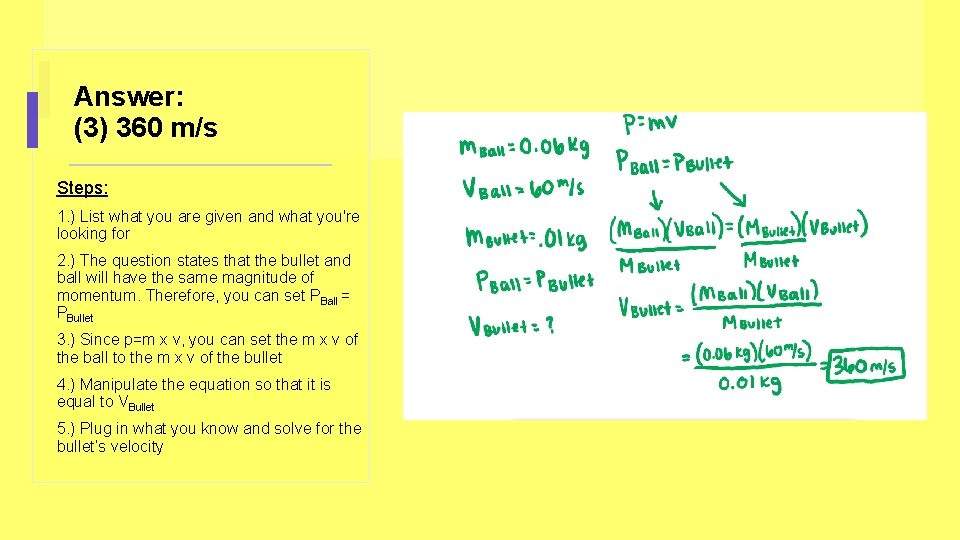 Answer:
(3) 360 m/s
Steps:
1. ) List what you are given and what you're
looking for
2. ) The question states that the bullet and
ball will have the same magnitude of
momentum. Therefore, you can set PBall =
PBullet
3. ) Since p=m x v, you can set the m x v of
the ball to the m x v of the bullet
4. ) Manipulate the equation so that it is
equal to VBullet
5. ) Plug in what you know and solve for the
bullet's velocity
mBall = 0.06 kg
VBall = 60 m/s
mBullet = .01 kg
PBall = PBullet
VBullet = ?
P=mv
PBall = PBullet
(MBall)(VBall) = (MBullet)(VBullet)
MBullet MBullet
VBullet = (MBall)(VBall)
MBullet
= (0.06 kg)(60 m/s) = 360 m/s
0.01 kg